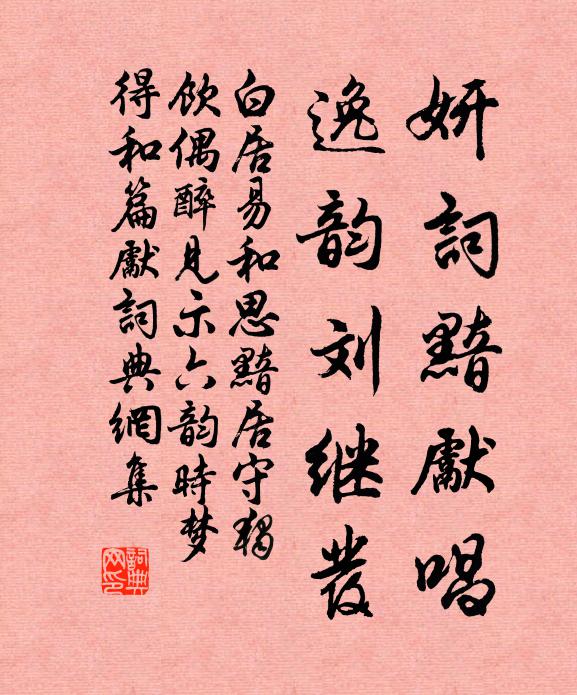 妍詞黯獻唱
逸韵刘继發
白居易和思黯居守獨
飲偶醉見示六韵時梦
得和篇獻詞典網集
詞典网印